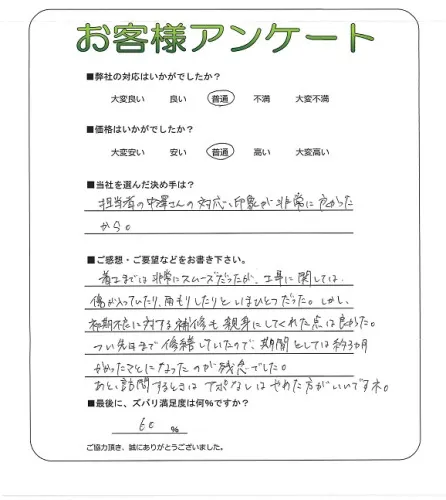 お客様アンケート
■弊社の対応はいかがでしたか？
大変良い 良い 普通 不満 大変不満
■価格はいかがでしたか？
大変安い 安い 普通 高い 大変高い
■当社を選んだ決め手は？
担当者の中澤さんの対応、印象が非常に良かった
から。
■ご感想・ご要望などをお書き下さい。
着工までは非常にスムーズだったが、工事に関しては、
傷が入っていたり、雨もりしたりといまひとつだった。しかし、
初期不良に対する補修も親身にしてくれた点は良かった。
つい先日まで修繕していたので、期間としては約3ヵ月
かかったことになったのが残念でした。
あと、訪問するときはアポなしはやめた方がいいですネ。
■最後に、ズバリ満足度は何%ですか？
60 %
ご協力頂き、誠にありがとうございました。